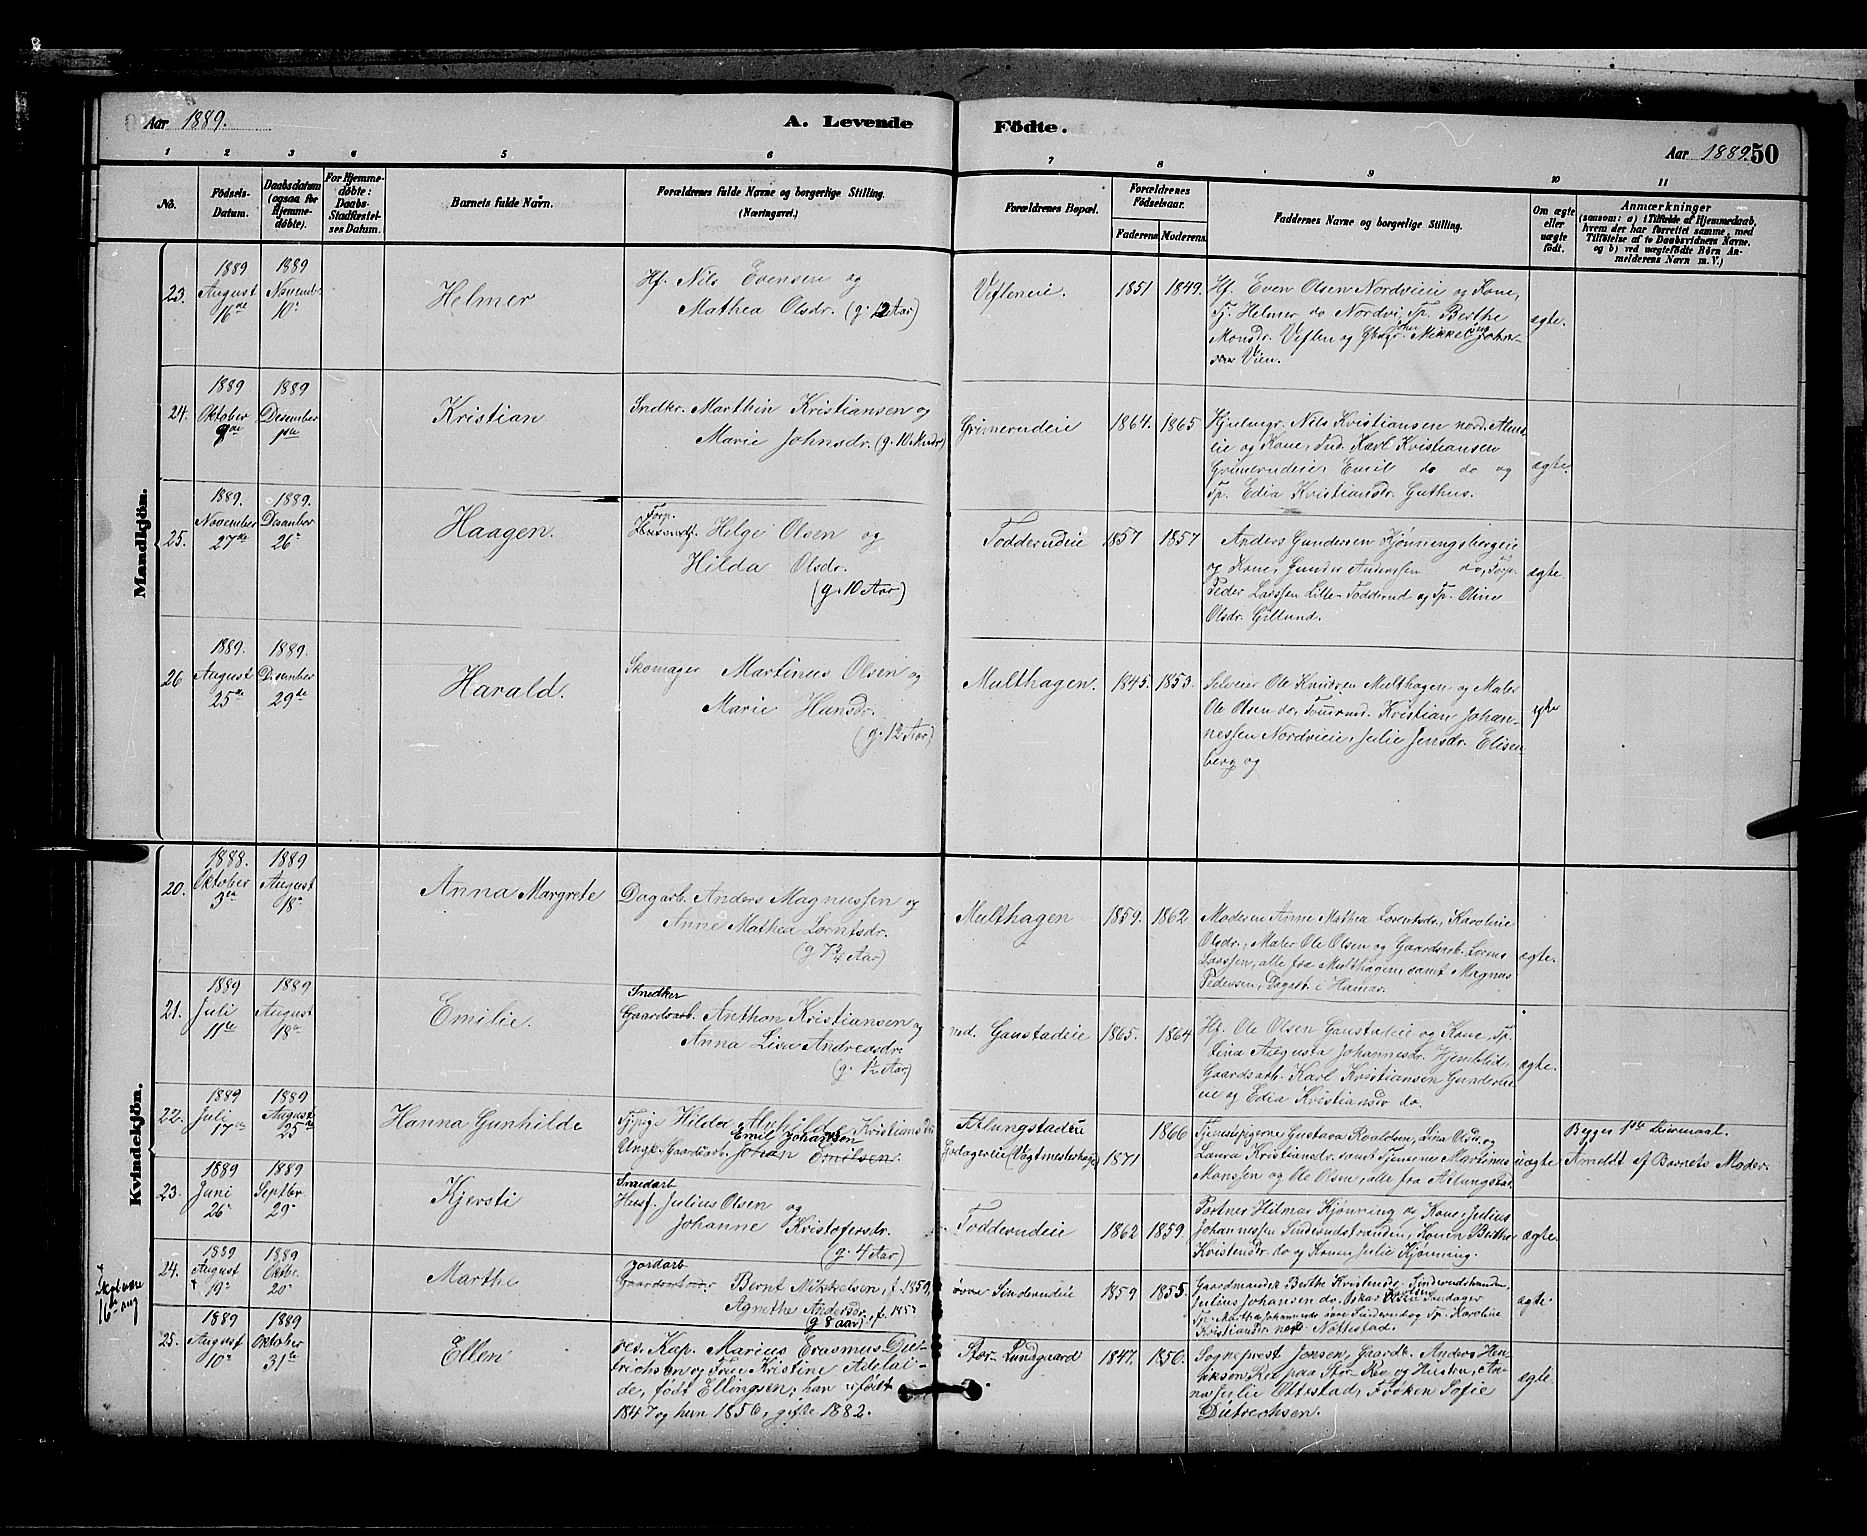 Aar 1889.
A. Levende Födte.
Aar 1889 50
1 2 3 4 5 6 7 8 9 10 11
No.
Födsels-
Datum.
Daabsdatum
(ogsaa for
Hjemme-
döbte).
For Hjemme-
döbte:
Daabs-
Stadfæstel-
ses Datum.
Barnets fulde Navn.
Forældrenes fulde Navne og borgerlige Stilling.
(Næringsvei.)
Forældrenes Bopæl.
Forældrenes
Födselsaar.
Faderens Moderens
Faddernes Navne og borgerlige Stilling.
Om ægte
eller
uægte
födt.
Anmærkninger
(saasom: a) i Tilfælde af Hjemmedaab,
hvem der har forrettet samme, med
Tilföielse af to Daabsvidners Navne.
og b) ved uægtefödte Börn An-
melderens Navn m. V.)
Mandkjön.
23.
1889
August
16de
1889
Novembr
10-
Helmer
Hf. Nils Evensen og
Mathea Olsdr. (g. 12 Aar)
Vefleneie.
1851
1849.
Hf. Even Olsen Nordvieie og Kone,
Tj. Helmer do Nordvi, Tp. Berthe
Monsdr. Veflen og Gbrgr. Mikkel Johan-
Vien.
ægte.
24.
1889
Oktober
9de
1889
Desember
1ste
Kristian
Snedkr. Marthin Kristiansen og
Marie Johnsdr. (g. 10 Mndr)
Grimerudeie
1864.
1865
Hjulmgr. Nils Kristiansen nord. Alm-
eie og Kone, Ind. Karl Kristiansen
Grimerudeie, Emil do do og
Tp. Edia Kristiansdr. Guthus.
ægte.
25.
1889.
November
27de
1889.
Desember
26-
Haagen.
Torp.
Helge Olsen og
Hilda Olsdr.
(g. 10 Aar)
Todderudeie
1857
1857
Anders Gundersen Kjønningsbergeie
og Kone, Gunder Anderssen do, Torp.
Peder Larssen Lille-Todderud og Tp. Oline
Olsdr. Gillund.
ægte.
26
1889.
August
25de
1889.
Desember
29de
Harald.
Skomager Martinus Olsen og
Marie Hansdr.
(g. 12 Aar)
Multhagen.
1845.
1853.
Selveier Ole Knudsen Multhagen og Maler
Ole Olsen do, Kristian Johan-
nessen Nordvieie, Julie Jensdr. Elisen
berg og
ægte
Kvindekjön.
20.
1888.
Oktober
3de
1889
August
18-
Anna Margrete
Dagarb. Anders Magnussen og
Anne Mathea Lorntsdr.
(g 7¾ Aar)
Multhagen
1859.
1862
Moderen Anne Mathea Lorentsdr., Karoline
Olsdr., Maler Ole Olsen og Gaardsarb. Lorens
Larssen, alle fra Multhagen samt Magnus
Pedersen, Dagarb. i Hamar.
ægte.
21.
1889
Juli
11te
1889
August
18de
Emilie.
Snedker
Gaardsarb. Anthon Kristiansen og
Anna Lisa Andreasdr.
(g. ½ Aar)
ned. Gaustadeie
1865.
1864
Hf. Ole Olsen Gaustadeie og Kone, Tp.
Lina Augusta Johannesdr. Hjemstad,
Gaardsarb. Karl Kristiansen Grimerud
eie og Edia Kristiansdr do.
ægte.
22.
1889
Juli
17de
1889
August
25de
Hanna Gunhilde
Tjpige Hilda Alvhilde Kristiansdr
Emil Johansen
Ungk. Gaardsarb. Johan Emilsen.
Atlungstadeie
Godagereie (Vagtmesterhage)
1871
1866
Tjenestpigerne Gustava Roaldsen, Lina Olsdr. og
Laura Kristiansdr. samt Tjenerne Martinus
Monssen og Ole Olsen, alle fra Atlungstad
uægte
Begges 1ste Leiermaal.
Anmeldt af Barnets Moder.
23.
1889
Juni
26-
1889
Septbr.
29-
Kjersti
Snedarb
Husf. Julius Olsen og
Johanne Kristofersdr.
(g. 4 Aar)
Todderudeie
1862
1859.
Portner Hilmar Kjønning do Kone, Julius
Johannessen Sinderudstranden, Konen Berthe
Kristensdr. do og Konen Julie Kjønning.
ægte.
Skal være
16de aug
24.
1889
August
19-
1889
Oktobr.
20-
Marthe
jordarb
Bernt Mikkelsen, f. 1859,
Agnethe Andersdr., f. 1857
(g 8 aar)
øvre Sinderudeie
1859
1855.
Gaardmandsk Berthe Kristensdr. Sinderudstranden,
Julius Johansen do. Oskar Olsen Sondager
Tp. Marthe Johannesdr. øvre Sinderud og Tp. Karoline
Kristiansdr. nedr. Nøttestad.
ægte.
25.
1889
August
10-
1889
Oktober
31te
Ellen
res. Kap. Marius Erasmus Diet-
richsen og Fru Kristine Adelai-
de, født Ellingsen; han er født
1847 og hun 1856, gifte 1882.
Stor-Lundgaard
1847.
1856.
Sogneprest Jensen, Gaardbr. Anders Hen-
rikson Roe paa Stor-Roe og Hustru, An-
na Julie Ottestad, Frøken Sofie
Dietrechsen.
ægte.